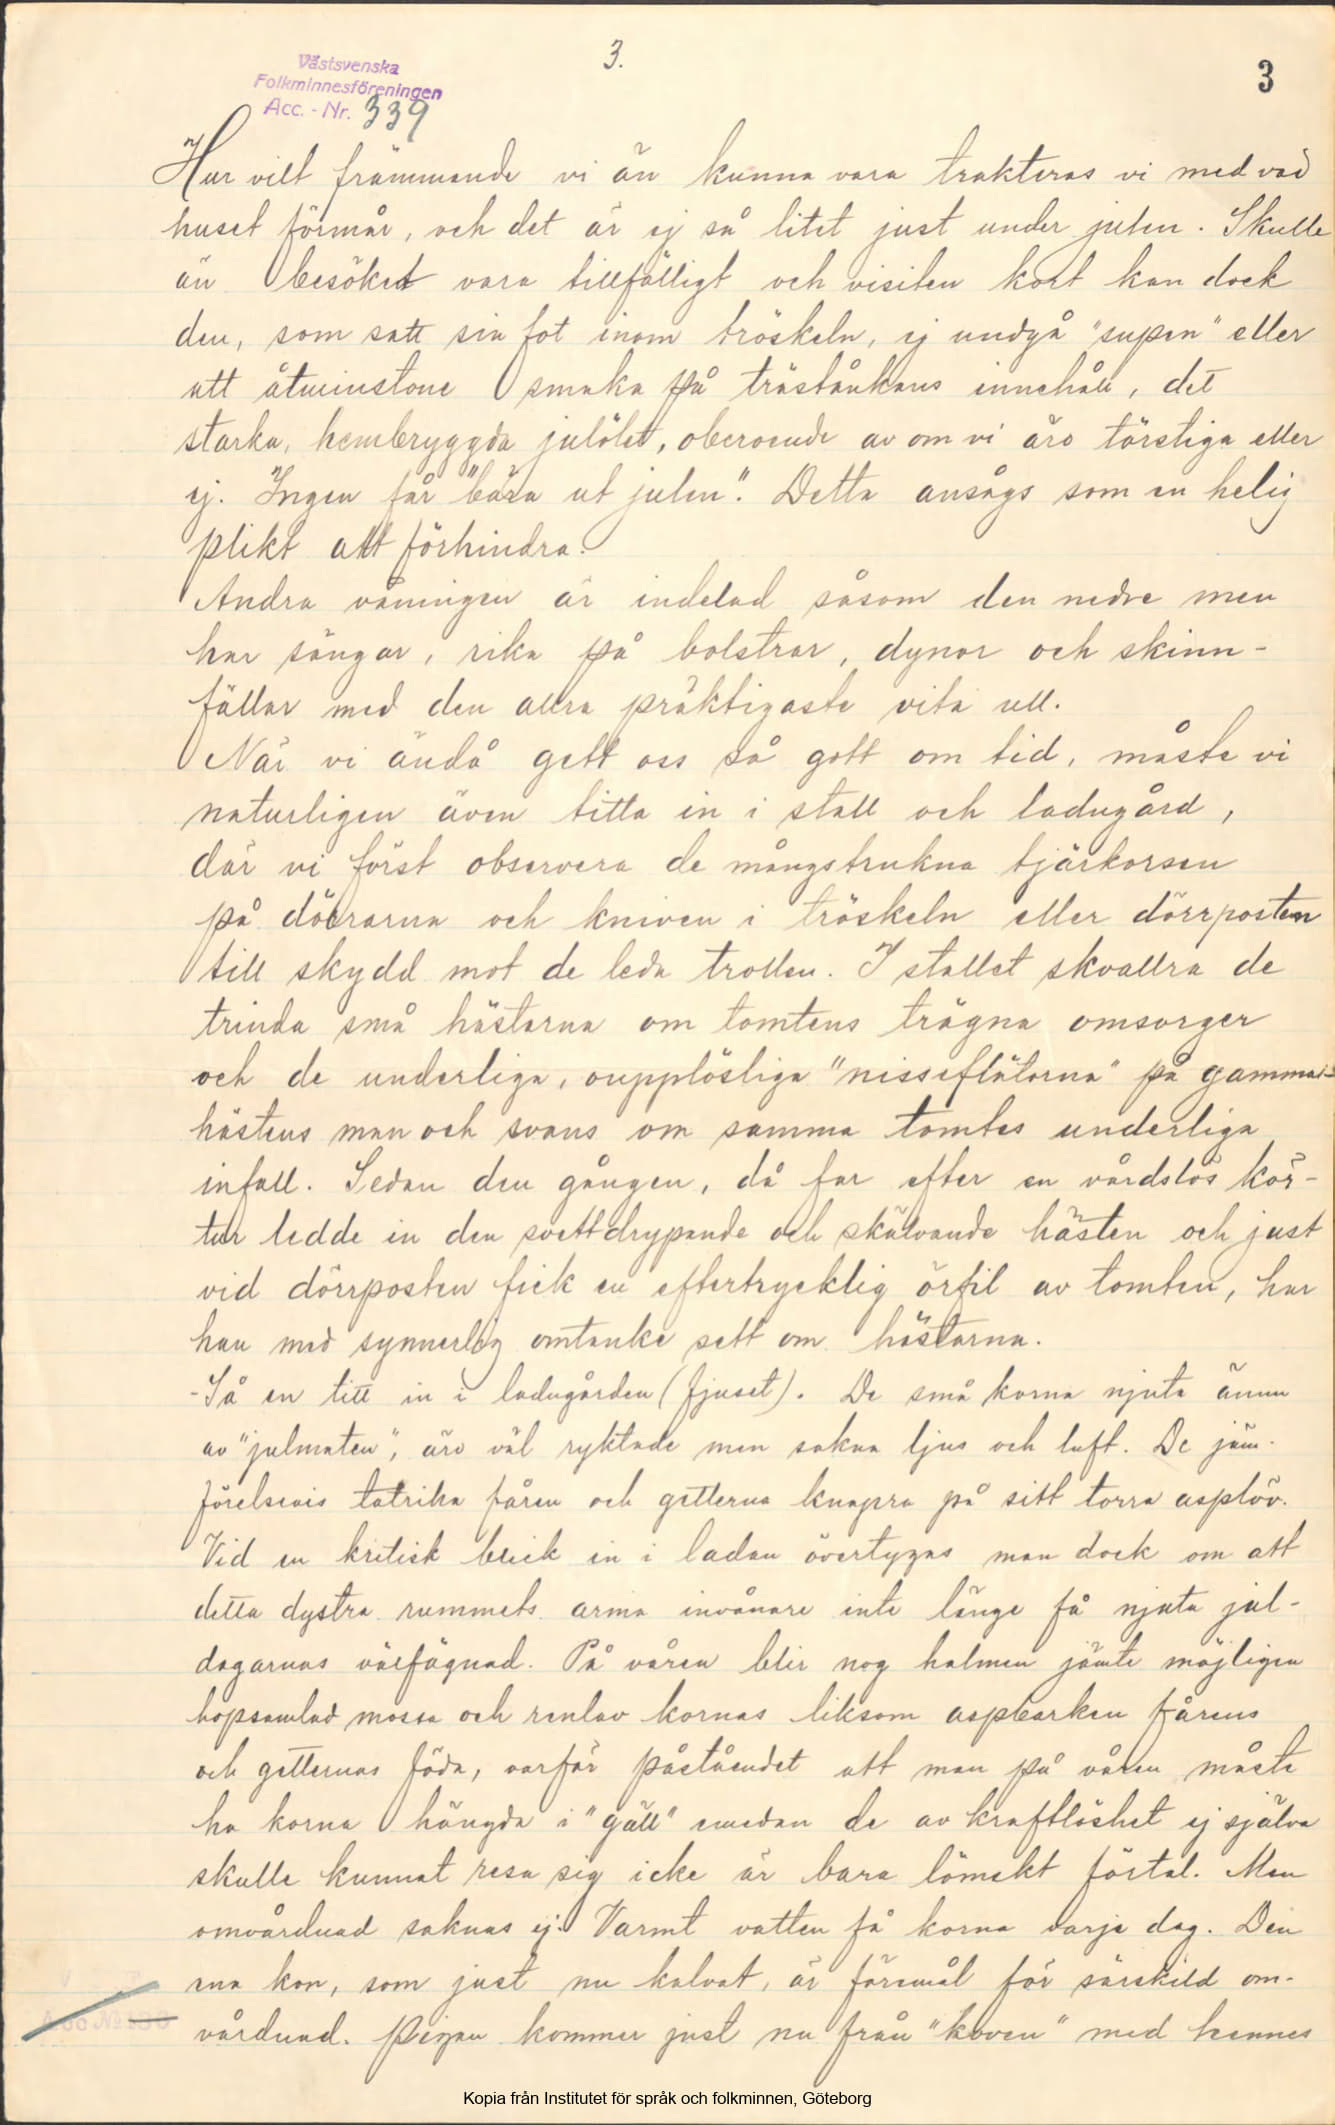 3.
3
Västsvenska
Folkminnesföreningen
Acc. - Nr. 339
Hur vilt främmande vi än kunna vara trakteras vi med vad
huset förmår, och det är ej så litet just under julen. Skulle
än besöket vara tillfälligt och visiten kort kan dock
den, som satt sin fot inom tröskeln, ej undgå "supen" eller
att åtminstone smaka på träståukans innehåll, det
starka, hembryggda julölet, oberoende av om vi äro törstiga eller
ej. Ingen får "bära ut julen". Detta ansågs som en helig
plikt att förhindra.
Andra våningen är indelad såsom den nedre men
har sängar, rika på bolstrar, dynor och skinn-
fällar med den allra präktigaste vita ull.
När vi ändå gett oss så gott om tid, måste vi
naturligen även titta in i stall och ladugård,
där vi först observera de mångstrukna tjärkorsen
på dörrarna och kniven i tröskeln eller dörrposten
till skydd mot de leda trollen. I stallet skvallra de
trinda små hästarna om tomtens trägna omsorger
och de underliga, oupplösliga "nisseflätorna" på gammel-
hästens man och svans om samma tomtes underliga
infall. Sedan den gången, då far efter en vårdslös kör-
tur ledde in den svettdrypande och skälvande hästen och just
vid dörrposten fick en eftertrycklig örfil av tomten, har
han med synnerlig omtanke sett om hästarna.
- Så en titt in i ladugården (fjuset). De små korna njuta ännu
av "julmaten", äro väl ryktade men sakna ljus och luft. De jäm-
förelsevis talrika fåren och getterna knapra på sitt torra asplöv.
Vid en kritisk blick in i ladan övertygas man dock om att
detta dystra rummets arma invånare inte länge få njuta jul-
dagarnas välfägnad. På våren blir nog halmen jämte möjligen
hopsamlad mossa och renlav kornas liksom aspbarken fårens
och getternas föda, varför påståendet att man på våren måste
ha korna hängda i "gäll" emedan de av kraftlöshet ej själva
skulle kunnat resa sig icke är bara lömskt förtal. Men
omvårdnad saknas ej. Varmt vatten få korna varje dag. Den
ena kon, som just nu kalvat, är föremål för särskild om-
vårdnad. Pigan kommer just nu från "koven" med hennes
Kopia från Institutet för språk och folkminnen, Göteborg